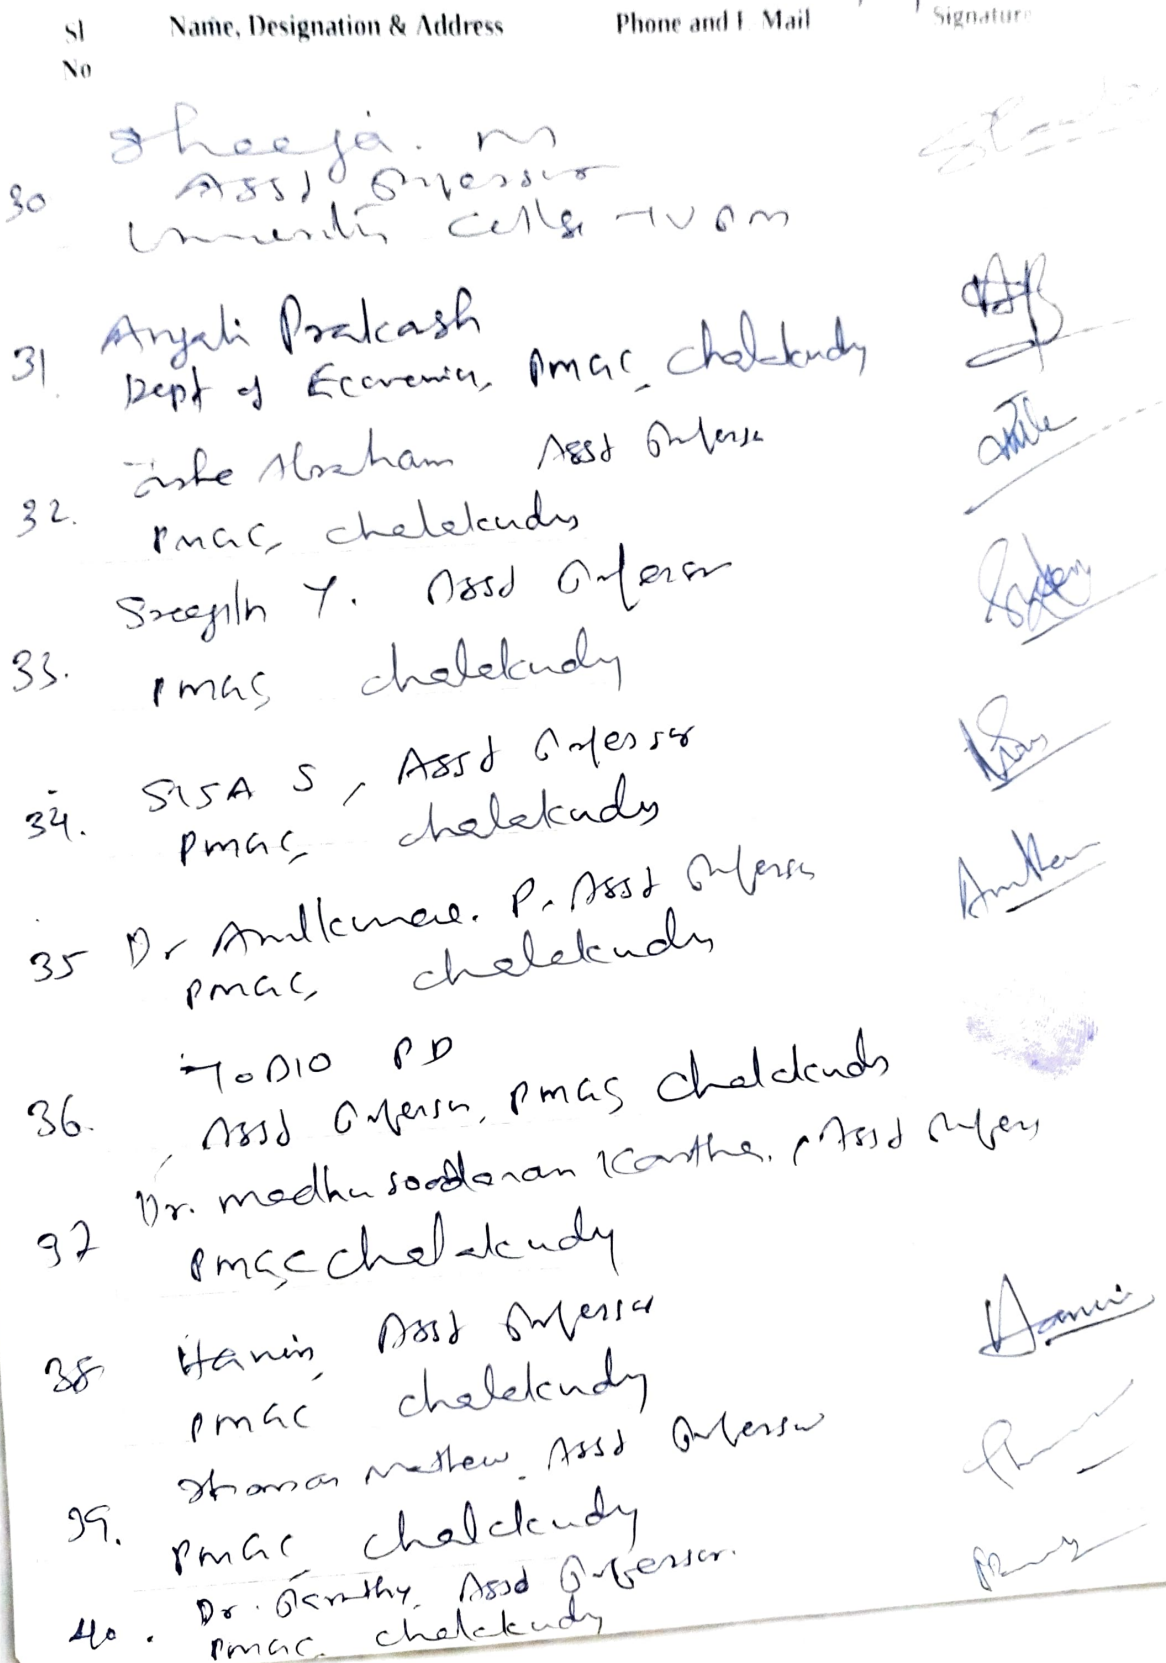 Sl Name, Designation & Address Phone and E Mail Signature
No
Sheeja. M
30 Asst Professor
University College TVPM
Anjali Prakash
31 Dept of Economics, PMGC, Chalakudy
Abraham Asst Professor
32. PMGC, Chalakudy
Y. Asst Professor
33. PMGC Chalakudy
34. SISA S, Asst Professor
PMGC, Chalakudy
35 Dr Anilkumar. P. Asst Professor
PMGC, Chalakudy
PD
36. Asst Professor, PMGC Chalakudy
Dr. Madhusoodanan Kartha, Asst Professor
37 PMGC Chalakudy
38 Asst Professor
PMGC Chalakudy
Thomas Mathew, Asst Professor
39. PMGC Chalakudy
Dr. Asst Professor.
40. PMGC. Chalakudy